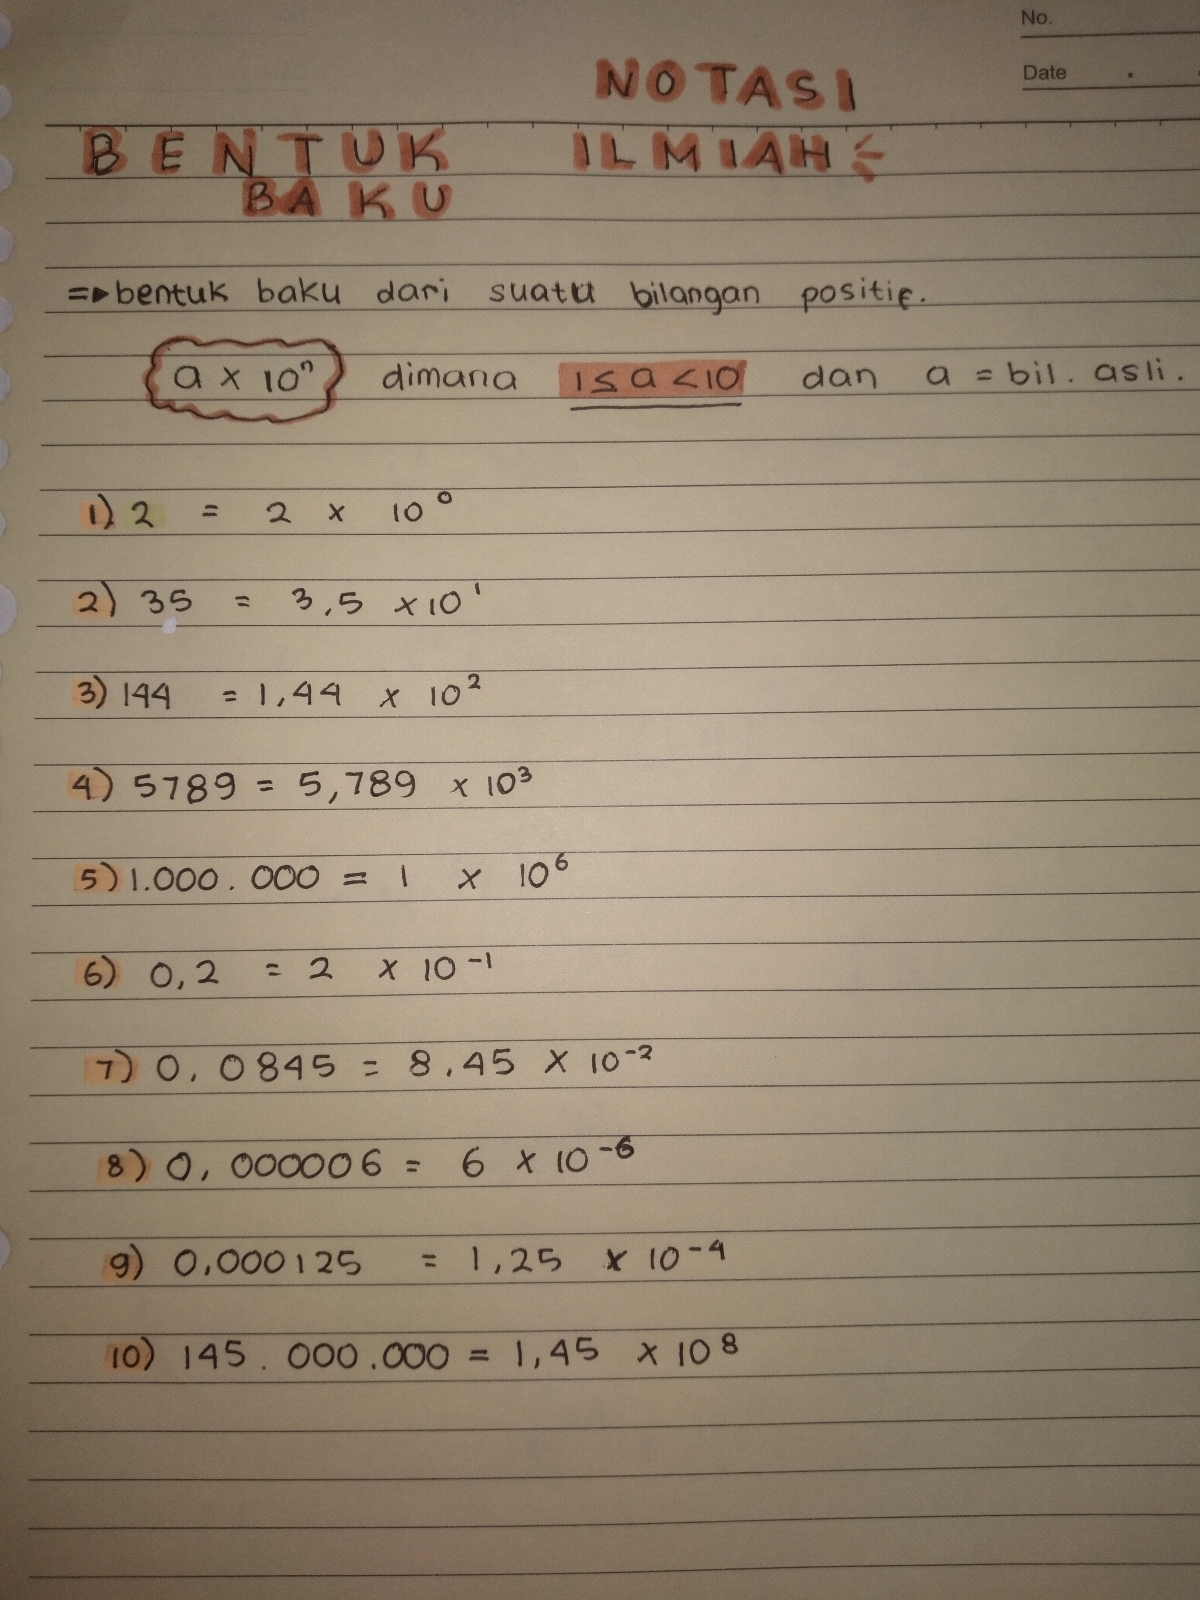 No.
Date
NOTASI
BENTUK ILMIAH
BAKU
=> bentuk baku dari suatu bilangan positif.
a x 10ⁿ dimana 1 ≤ a < 10 dan a = bil. asli.
1) 2 = 2 x 10⁰
2) 35 = 3,5 x 10¹
3) 144 = 1,44 x 10²
4) 5789 = 5,789 x 10³
5) 1.000.000 = 1 x 10⁶
6) 0,2 = 2 x 10⁻¹
7) 0,0845 = 8,45 x 10⁻²
8) 0,000006 = 6 x 10⁻⁶
9) 0,000125 = 1,25 x 10⁻⁴
10) 145.000.000 = 1,45 x 10⁸